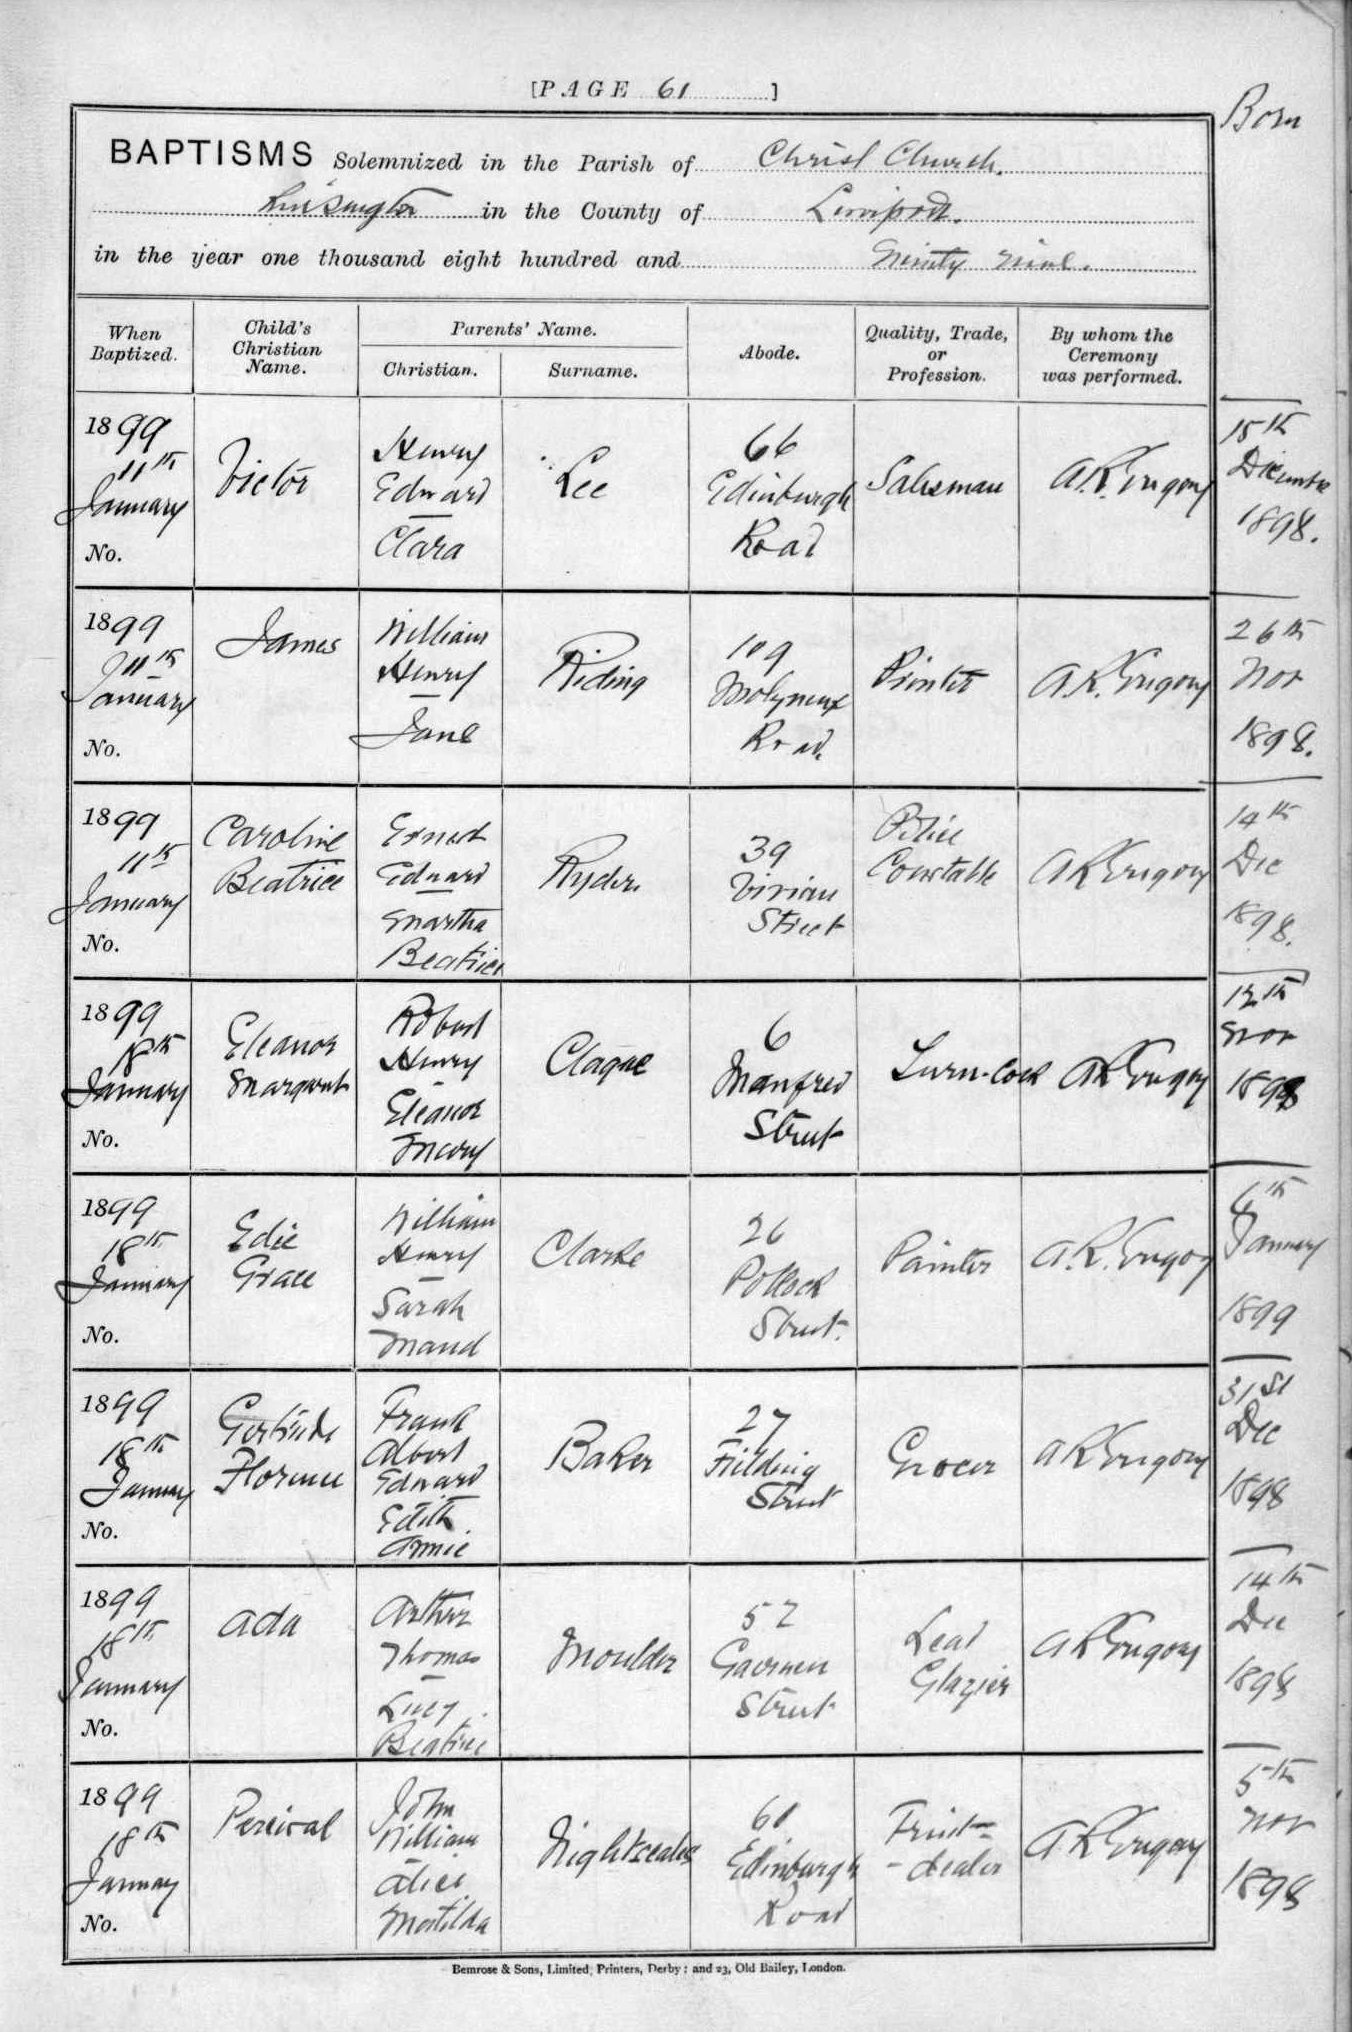 [PAGE 61 ]
Born
BAPTISMS Solemnized in the Parish of Christ Church.
Kensington in the County of Liverpool.
in the year one thousand eight hundred and Ninety Nine.
When Baptized. Child's Christian Name. Parents' Name. Abode. Quality, Trade, or Profession. By whom the Ceremony was performed.
Christian. Surname.
1899 11th January No. Victor Henry Edward – Clara Lee 66 Edinburgh Road Salesman A.R. Gregory 15th December 1898.
1899 11th January No. James William Henry – Jane Riding 109 Molyneux Road. Printer A.R. Gregory 26th Nov 1898.
1899 11th January No. Caroline Beatrice Ernest Edward – Martha Beatrice Ryder. 39 Vivian Street Police Constable A R Gregory 14th Dec 1898.
1899 18th January No. Eleanor Margaret Robert Henry – Eleanor Mary Clague 6 Manfred Street Turn-cock A R Gregory 12th Nov 1898
1899 18th January No. Edie Grace William Henry – Sarah Maud Clarke 26 Pollock Street. Painter A.R. Gregory 6th January 1899
1899 18th January No. Gertrude Florence Frank Albert Edward – Edith Annie Baker 27 Fielding Street Grocer A R Gregory 31st Dec 1898
1899 18th January No. Ada Arthur Thomas – Lucy Beatrice Moulder 52 Street Lead Glazier A R Gregory 14th Dec 1898
1899 18th January No. Percival John William – Alice Matilda Nightscales 61 Edinburgh Road Fruit- -dealer A R Gregory 5th Nov 1898
Bemrose & Sons, Limited, Printers, Derby; and 23, Old Bailey, London.